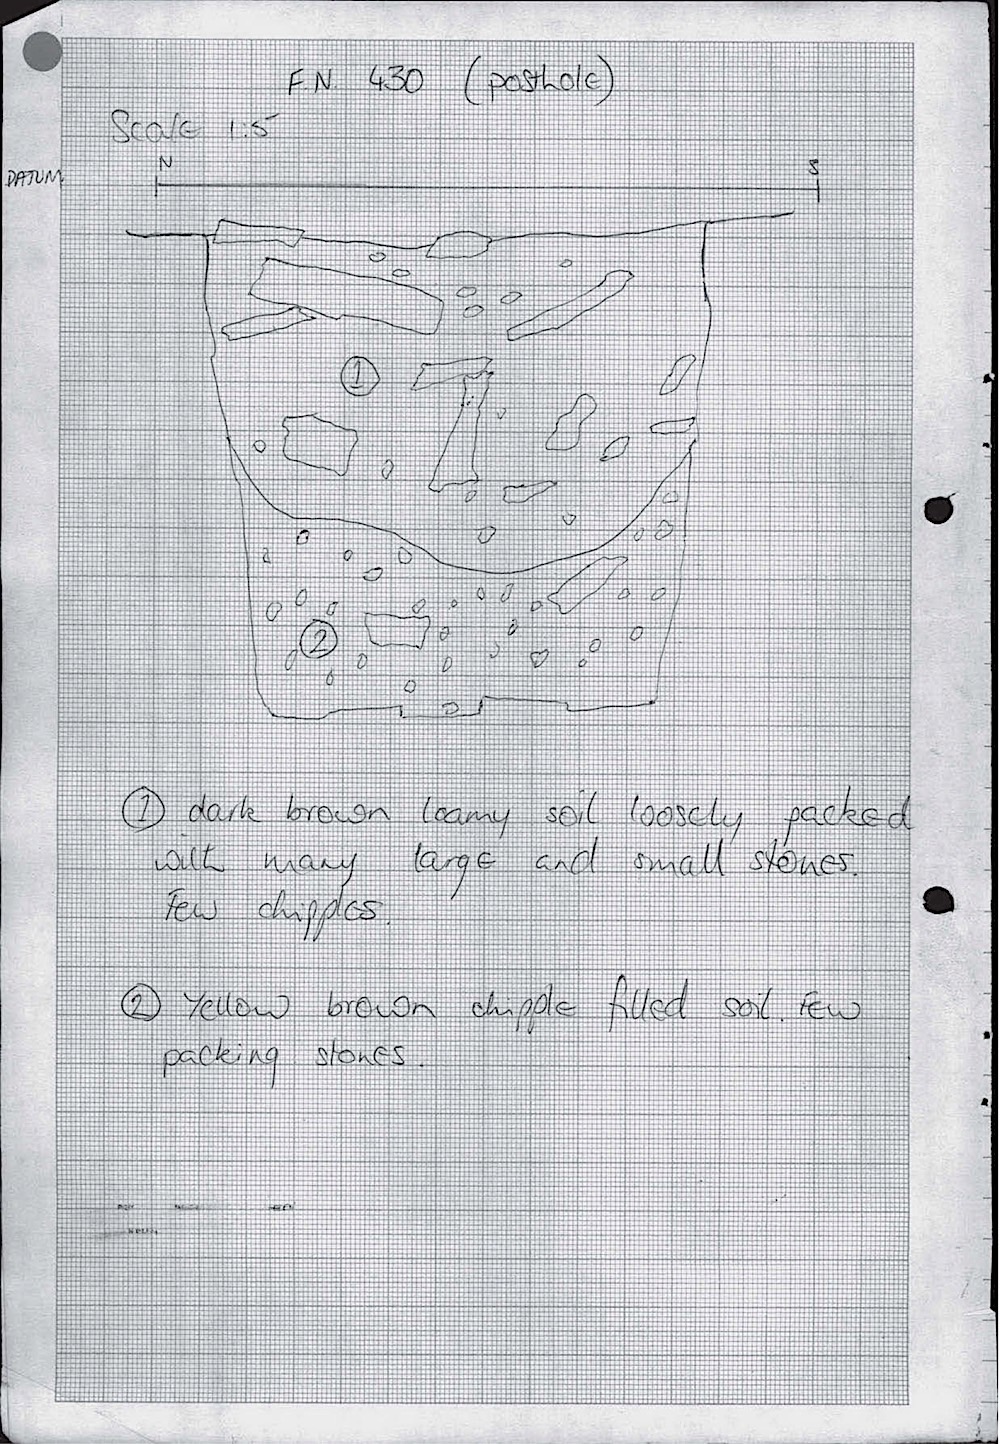 F.N. 430 (posthole)
Scale 1:5
N S
DATUM
1
2
① dark brown loamy soil loosely packed
with many large and small stones.
Few chipples.
② Yellow brown chipple filled soil. Few
packing stones.